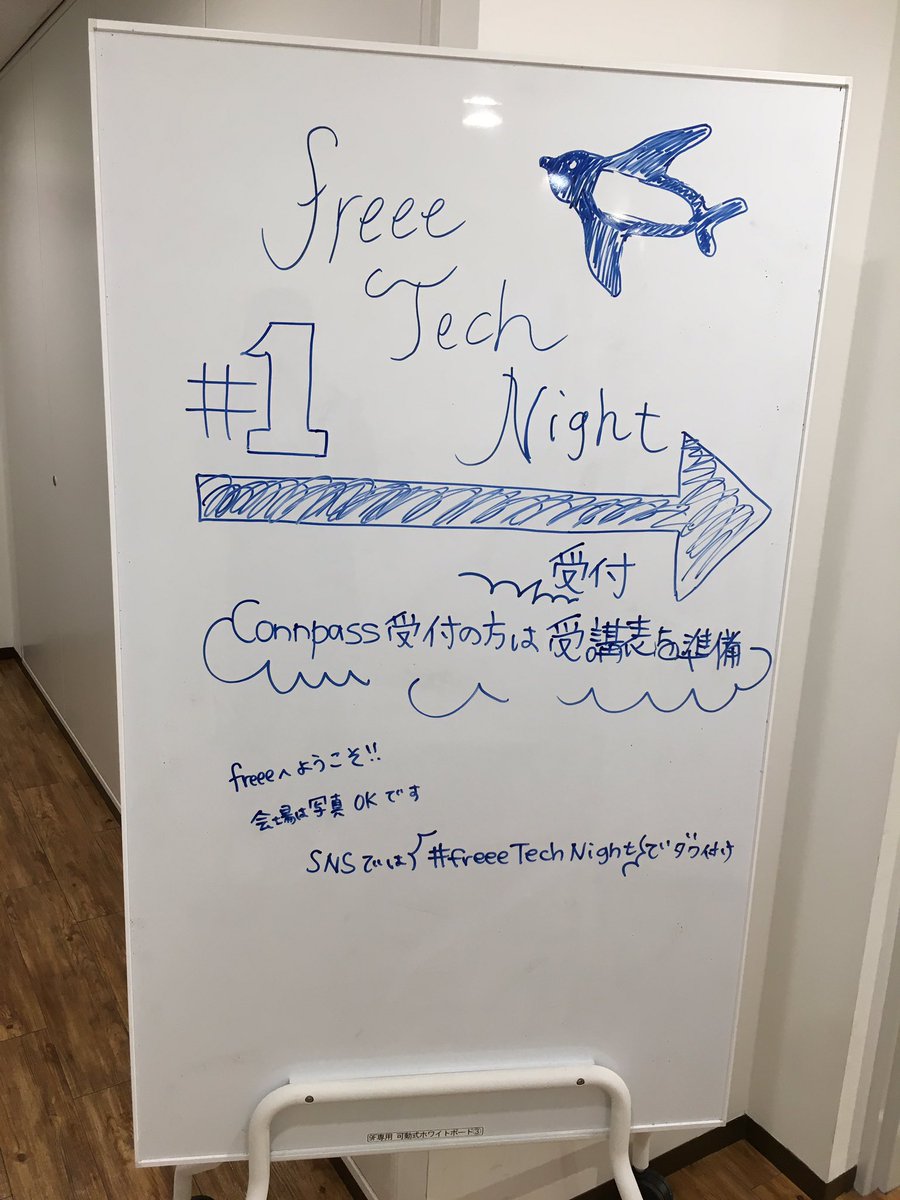 freee
Tech
#1
Night
受付
Connpass受付の方は受講表を準備
freeeへようこそ!!
会場は写真OKです
SNSでは #freeeTechNight でタグ付け
9F専用 可動式ホワイトボード③